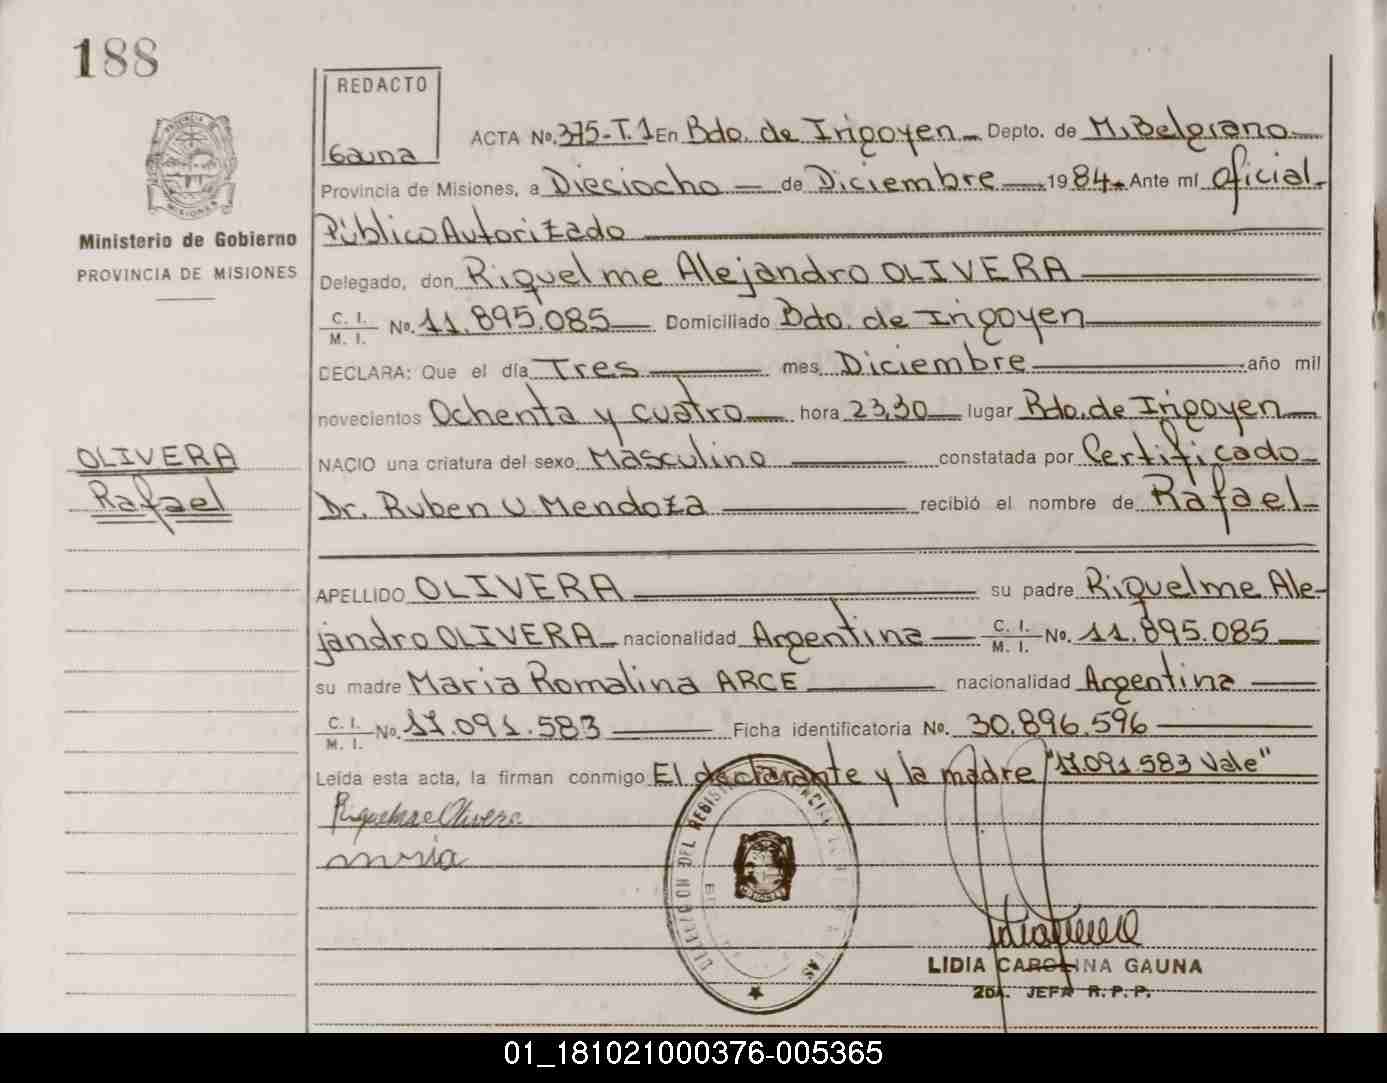 188
REDACTO
Gauna
PROVINCIA DE
MISIONES
Ministerio de Gobierno
PROVINCIA DE MISIONES
OLIVERA
Rafael
ACTA No. 375-T.1 En Bdo. de Irigoyen Depto. de M. Belgrano
Provincia de Misiones, a Dieciocho de Diciembre 1984. Ante mí Oficial
Público Autorizado
Delegado, don Riquelme Alejandro OLIVERA
C. I. / M. I. No. 11.895.085 Domiciliado Bdo. de Irigoyen
DECLARA: Que el día Tres mes Diciembre año mil
novecientos Ochenta y cuatro hora 23,30 lugar Bdo. de Irigoyen
NACIO una criatura del sexo Masculino constatada por Certificado
Dr. Ruben U. Mendoza recibió el nombre de Rafael
APELLIDO OLIVERA su padre Riquelme Ale-
jandro OLIVERA nacionalidad Argentina C. I. / M. I. No. 11.895.085
su madre Maria Romalina ARCE nacionalidad Argentina
C. I. / M. I. No. 17.091.583 Ficha identificatoria No. 30.896.596
Leída esta acta, la firman conmigo El declarante y la madre "17091583 Vale"
Riquelme Olivera
maria
DELEGACION DEL
MISIONES
LIDIA CAROLINA GAUNA
2DA. JEFA R. P. P.
01_181021000376-005365